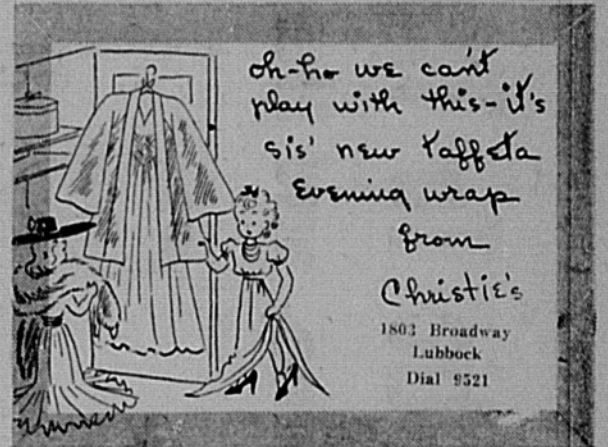 oh-ho we can't
play with this - it's
sis' new taffeta
evening wrap
from
Christie's
1803 Broadway
Lubbock
Dial 9521